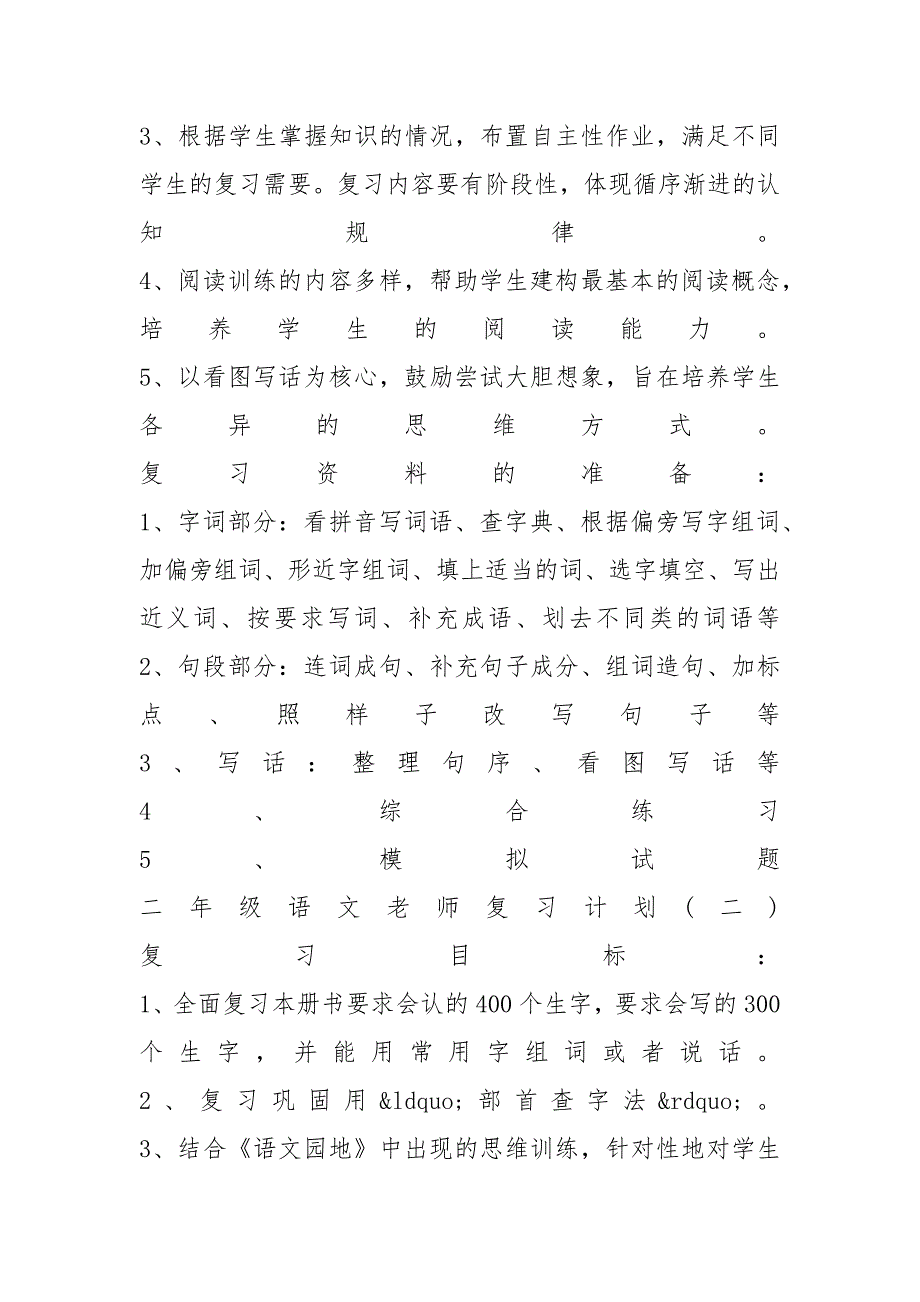 3、根据学生掌握知识的情况，布置自主性作业，满足不同
学生的复习需要。复习内容要有阶段性，体现循序渐进的认
知规律。
4、阅读训练的内容多样，帮助学生建构最基本的阅读概念，
培养学生的阅读能力。
5、以看图写话为核心，鼓励尝试大胆想象，旨在培养学生
各异的思维方式。
复习资料的准备：
1、字词部分：看拼音写词语、查字典、根据偏旁写字组词、
加偏旁组词、形近字组词、填上适当的词、选字填空、写出
近义词、按要求写词、补充成语、划去不同类的词语等
2、句段部分：连词成句、补充句子成分、组词造句、加标
点、照样子改写句子等
3、写话：整理句序、看图写话等
4、综合练习
5、模拟试题
二年级语文老师复习计划(二)
复习目标：
1、全面复习本册书要求会认的400个生字，要求会写的300
个生字，并能用常用字组词或者说话。
2、复习巩固用&ldquo;部首查字法&rdquo;。
3、结合《语文园地》中出现的思维训练，针对性地对学生